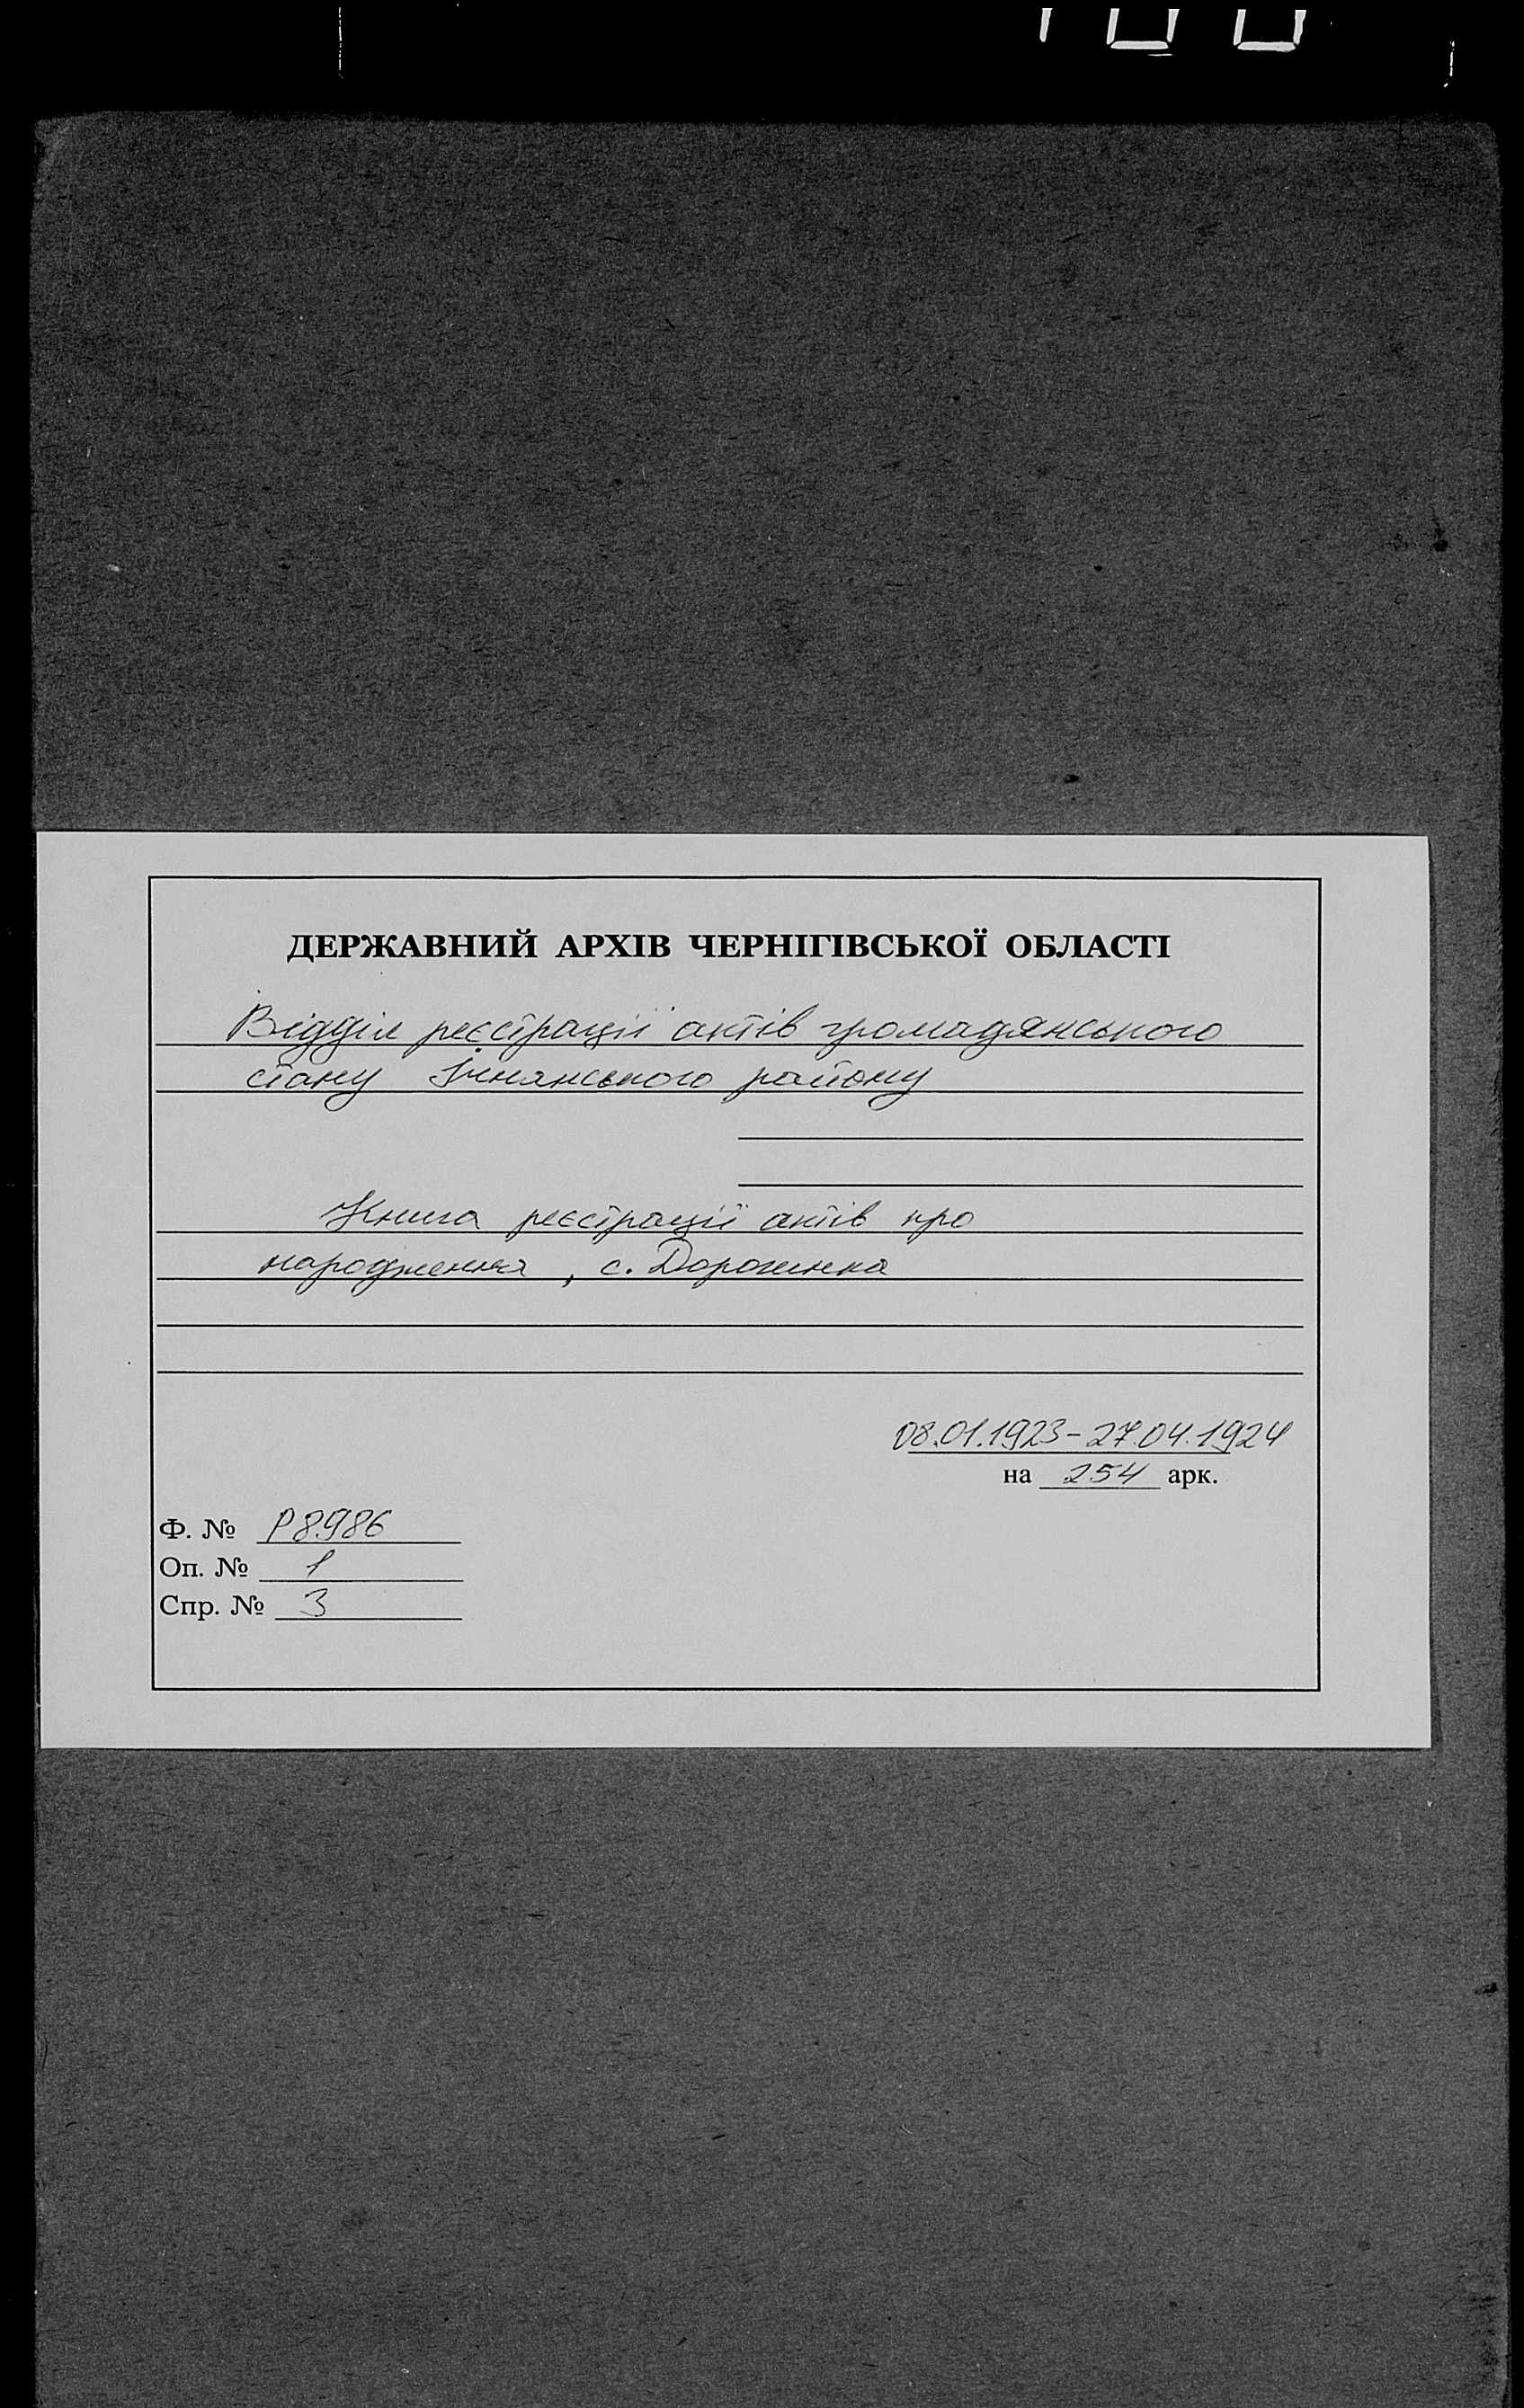 ДЕРЖАВНИЙ АРХІВ ЧЕРНІГІВСЬКОЇ ОБЛАСТІ
Відділ реєстрації актів громадянського
стану Ічнянського району
Книга реєстрації актів про
народження, с. Дорогинка
08.01.1923-27.04.1924
на 254 арк.
Ф. № Р8986
Оп. № 1
Спр. № 3